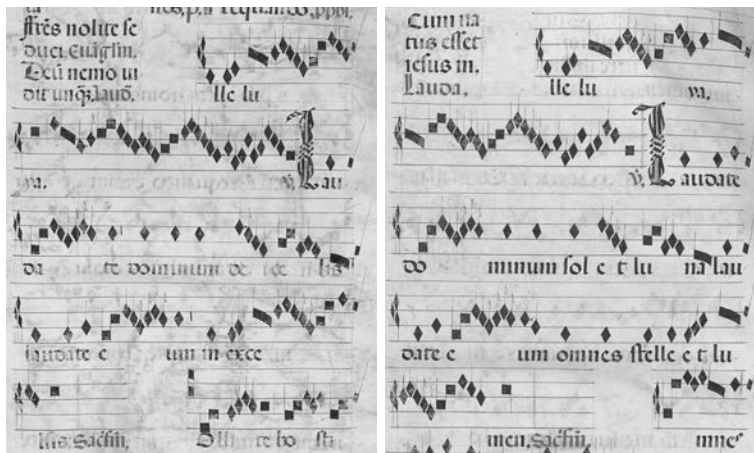 ffrēs nolite se
duci. Euāglm̄.
Deū nemo ui
dit unq̄. laud̄.
lle lu
ya.
℣. Lau
da te dominum de ce lis
laudate e um in exce
lsis. Sacfm̄.
Ollite ho sti
Cum na
tus esset
iesus in.
Lauda.
lle lu ya.
℣. Laudate
do minum sol e t lu na lau
date e um omnes stelle e t lu
men. Sacfm̄.
mnes